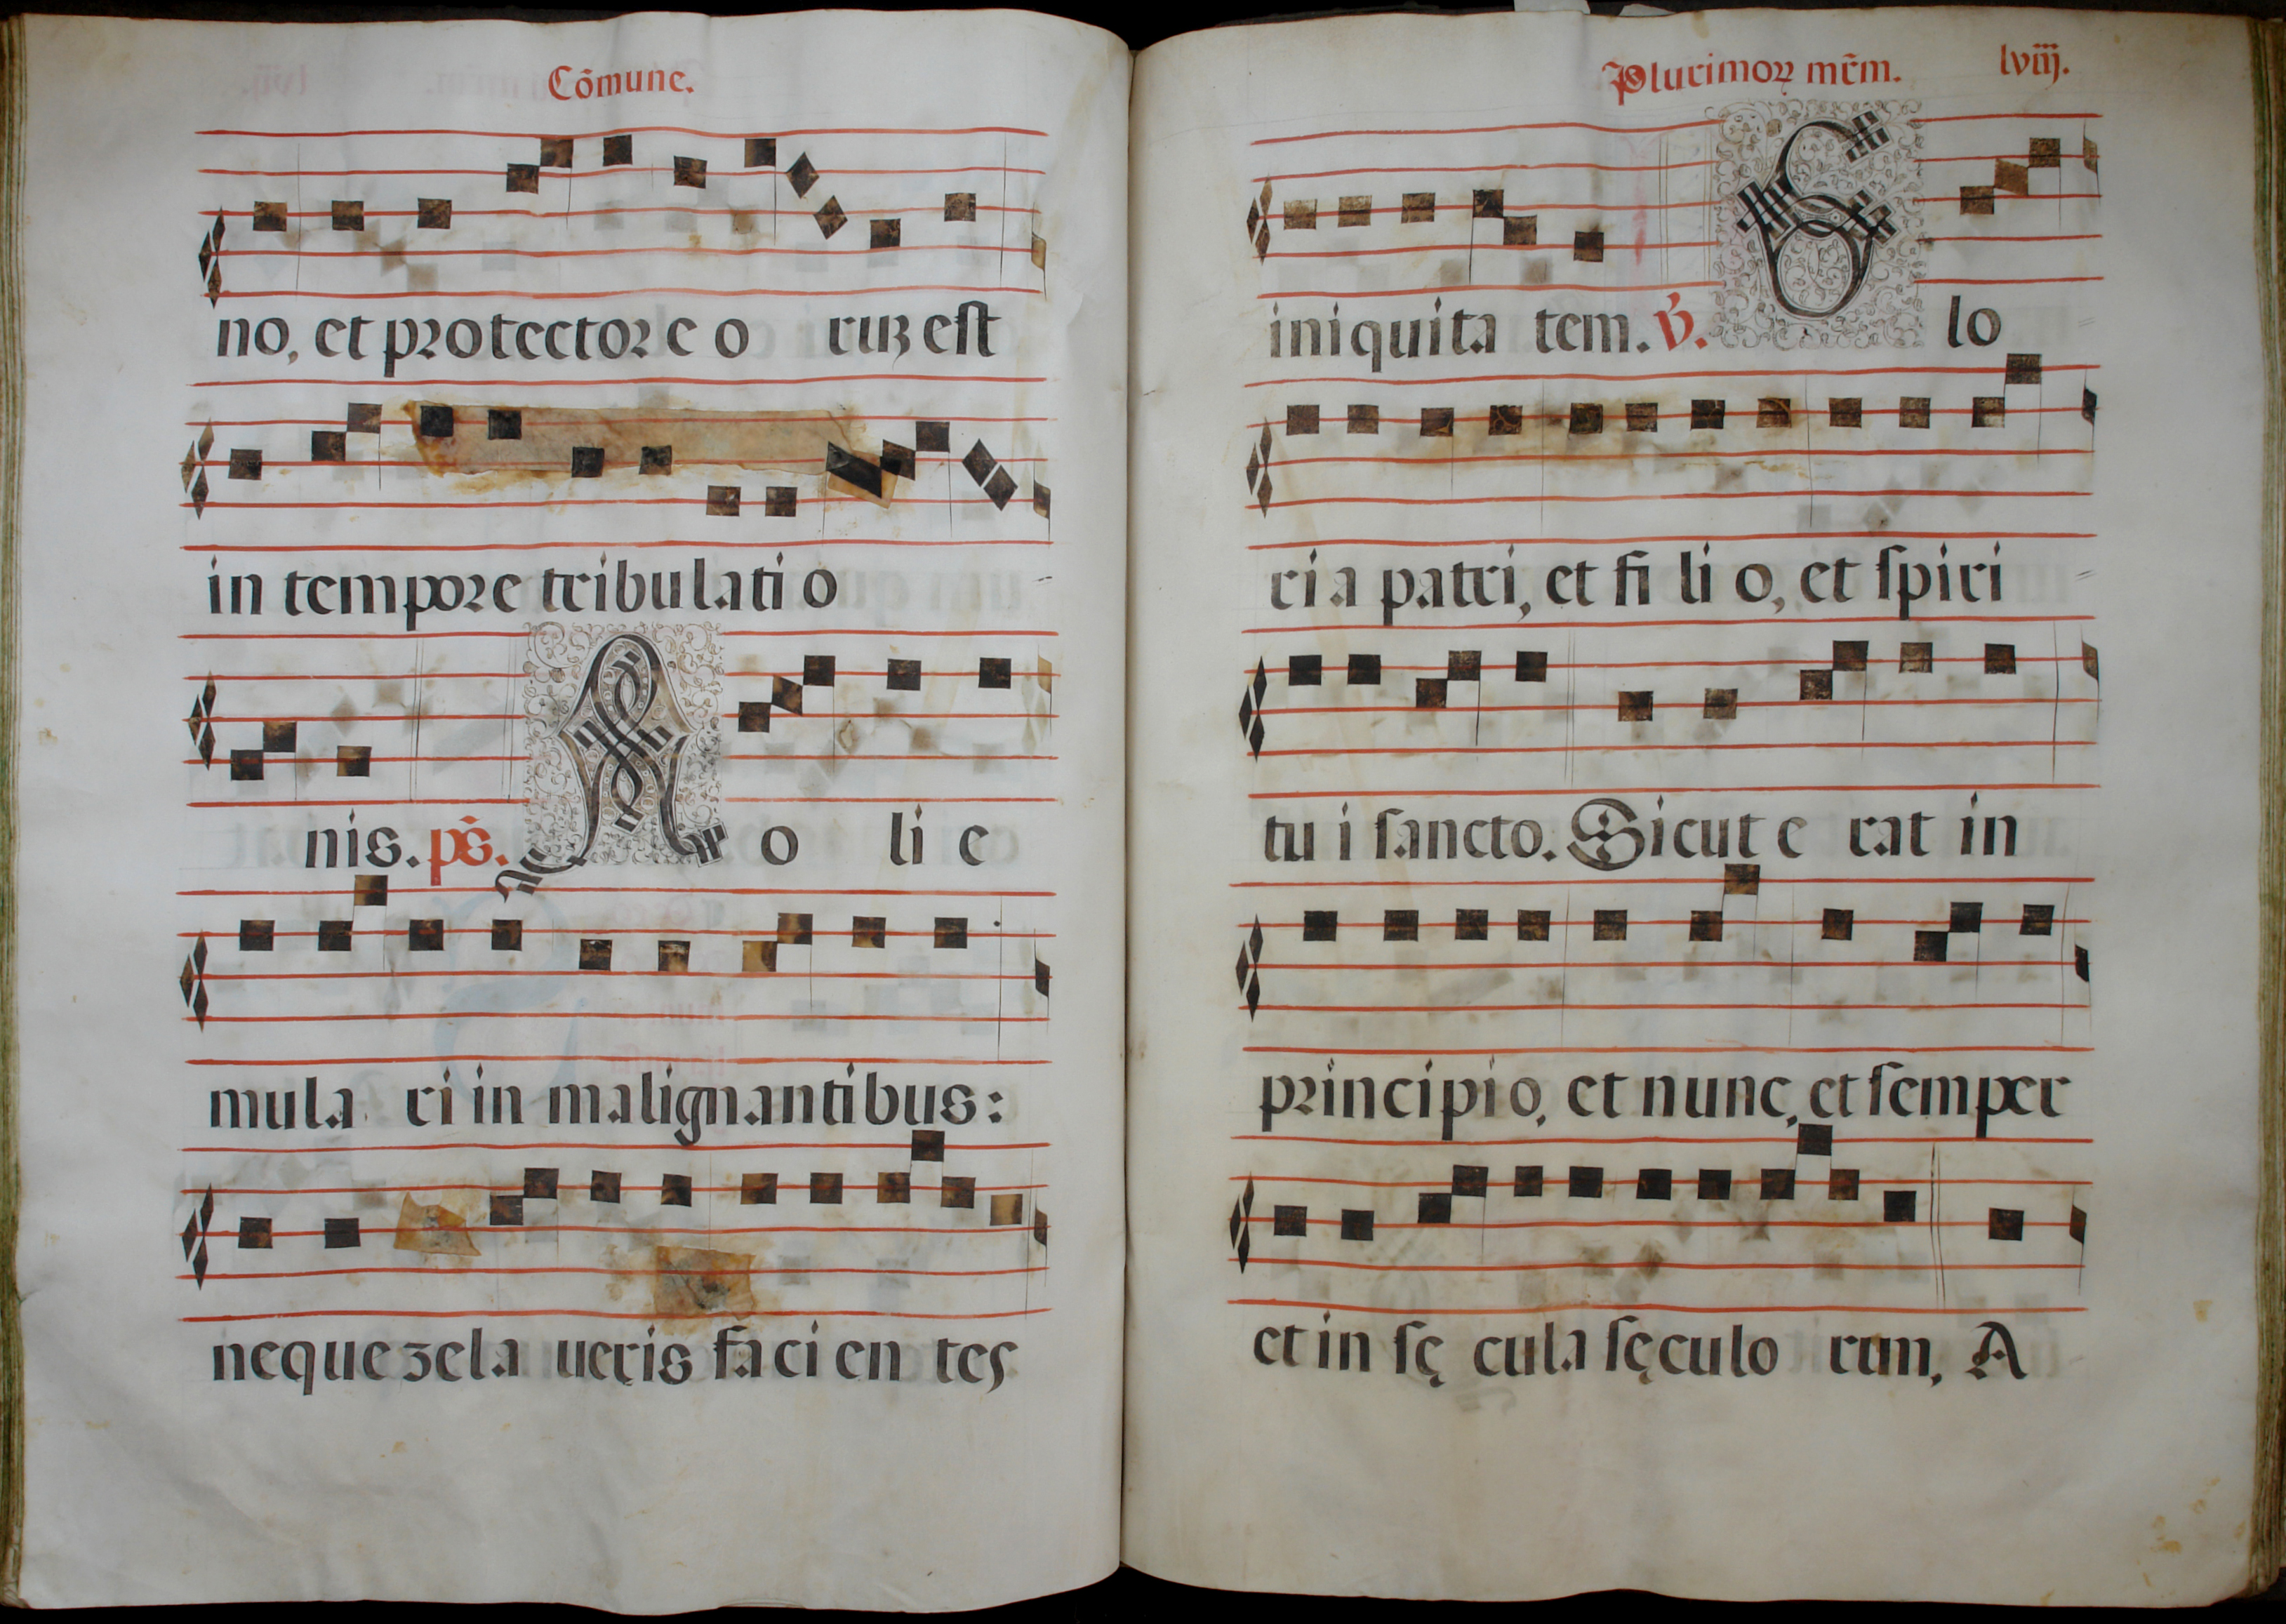 Cõmune.
no, et protectore o ruʒ est
in tempore tribulati o
nis. ps̃. N o li e
mula ri in malignantibus:
neque zela ueris faci en tes
Plurimoꝝ mr̃m. lviij.
iniquita tem. v̓. G lo
ri a patri, et fi li o, et spiri
tu i sancto. Sicut e rat in
principio, et nunc, et semper
et in sę cula sęculo rum, A